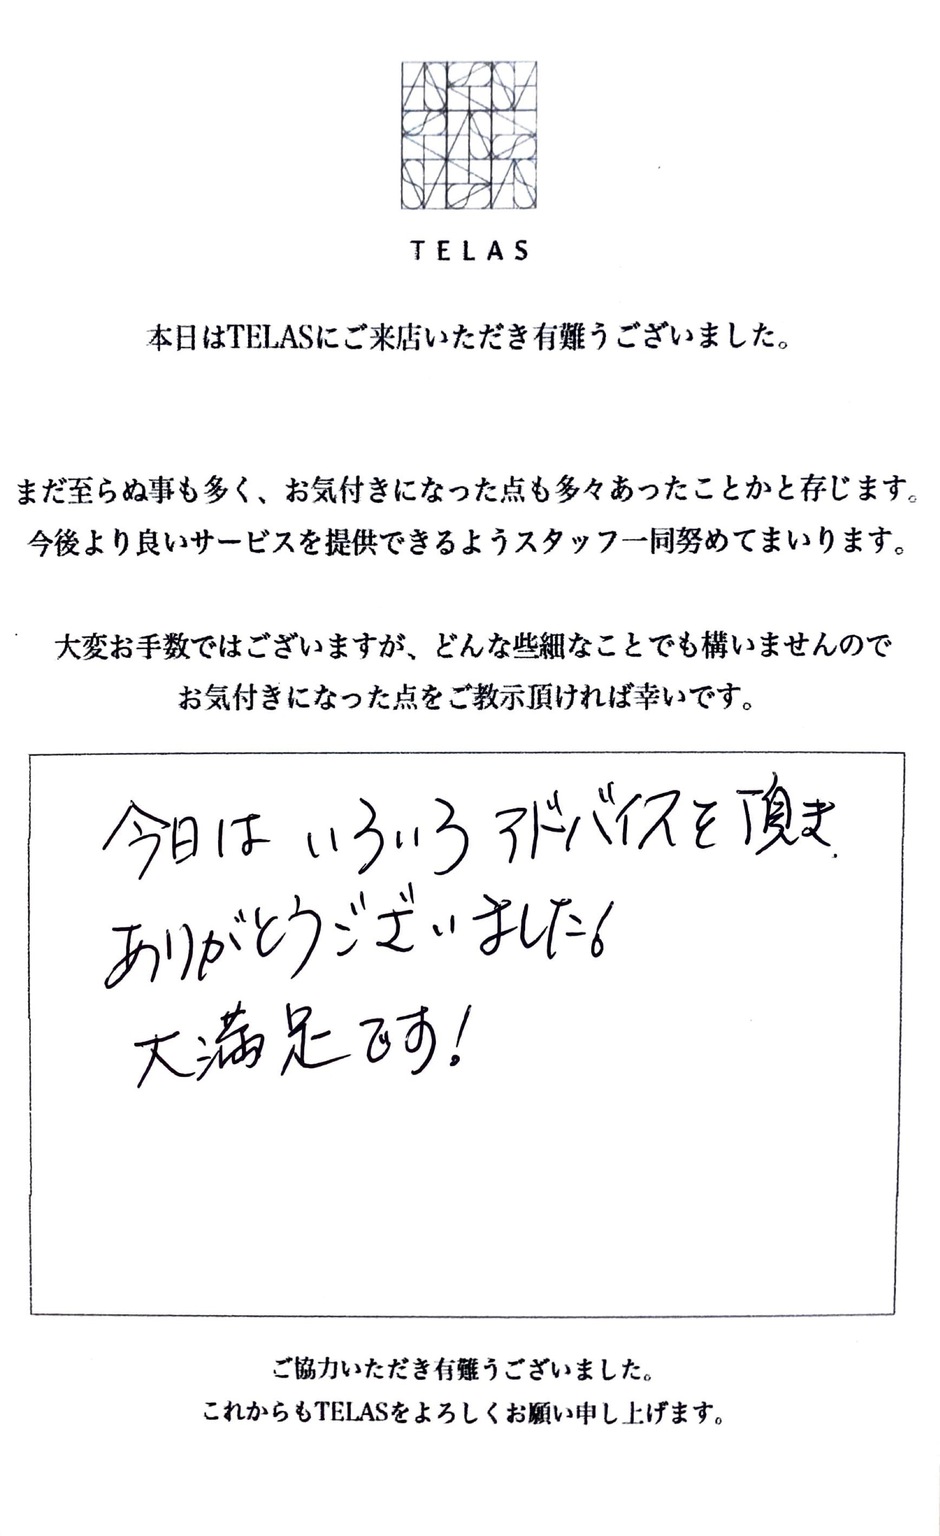 TELAS
本日はTELASにご来店いただき有難うございました。
まだ至らぬ事も多く、お気付きになった点も多々あったことかと存じます。
今後より良いサービスを提供できるようスタッフ一同努めてまいります。
大変お手数ではございますが、どんな些細なことでも構いませんので
お気付きになった点をご教示頂ければ幸いです。
今日は いろいろ アドバイスを 頂き
ありがとうございました。
大満足です!
ご協力いただき有難うございました。
これからもTELASをよろしくお願い申し上げます。